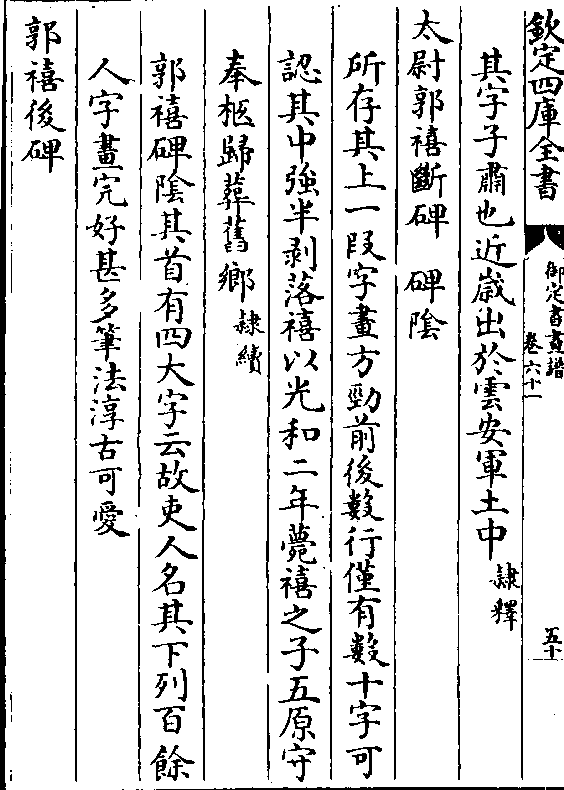 欽定四庫全書
御定書畫譜
卷六十一
五十
其字子肅也近歲出於雲安軍土中隸釋
太尉郭禧斷碑　碑陰
所存其上一段字畫方勁前後數行僅有數十字可
認其中強半剥落禧以光和二年薨禧之子五原守
奉柩歸葬舊鄉隸續
郭禧碑陰其首有四大字云故吏人名其下列百餘
人字畫完好甚多筆法淳古可愛
郭禧後碑